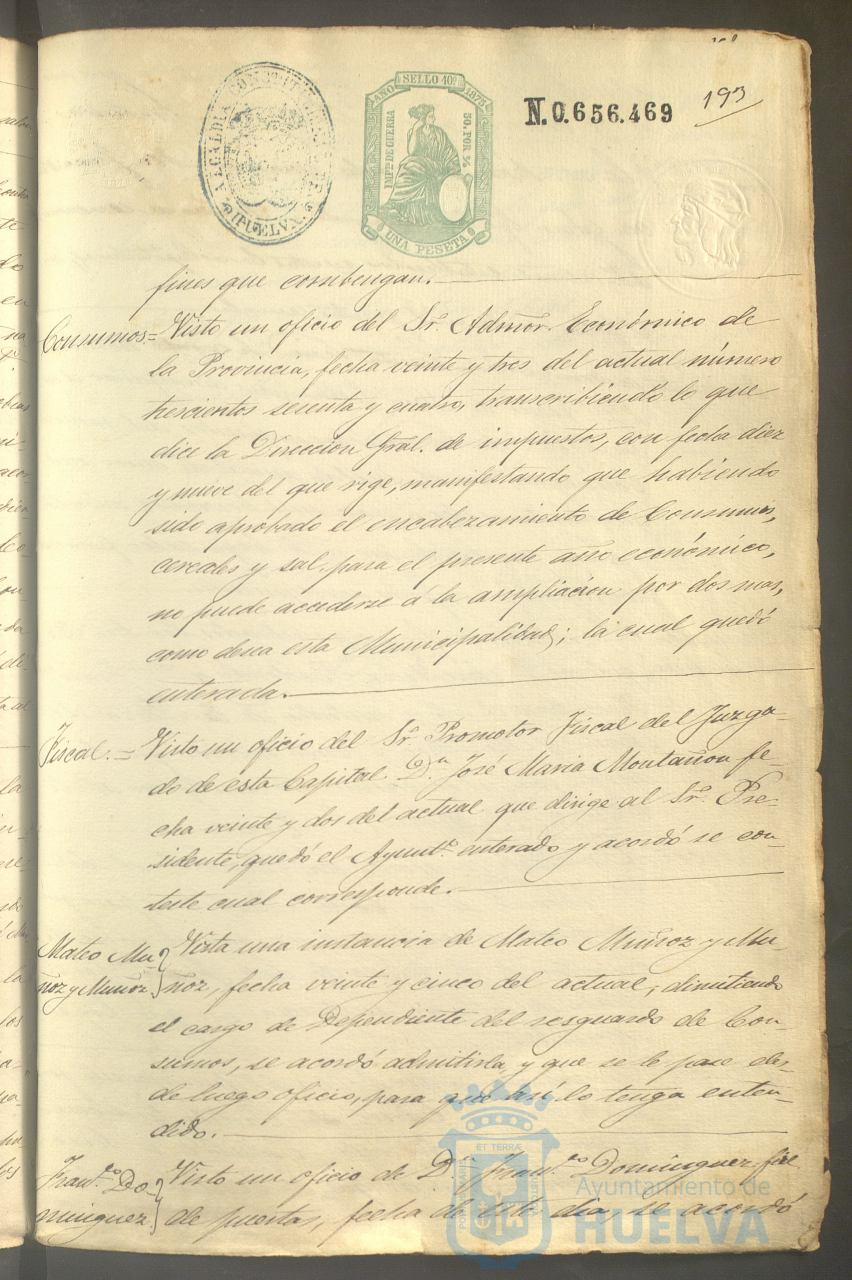 ALCALDIA CONSTITUCIONAL DE HUELVA
AÑO SELLO 10º 1875
IMP.to DE GUERRA
50 POR %
UNA PESETA
N. 0.656.469
193
fines que combengan.
Consumos = Visto un oficio del Sr. Admor. Económico de
la Provincia, fecha veinte y tres del actual número
trescientos sesenta y cuatro, transcribiendo lo que
dice la Direccion Gral. de impuestos, con fecha diez
y nueve del que rige, manifestando que habiendo
sido aprobado el encabezamiento de Consumos,
cereales y sal, para el presente año económico,
no puede accederse á la ampliacion por dos mas,
como desea esta Municipalidad; la cual quedó
enterada.
Fiscal. = Visto un oficio del Sr. Promotor Fiscal del Juzga-
do de esta Capital D.n José Maria Montañon fe-
cha veinte y dos del actual que dirige al Sr. Pre-
sidente, quedó el Ayunt.o enterado y acordó se con-
teste cual corresponde.
Mateo Mu- Vista una instancia de Mateo Muñoz y Mu-
ñoz y Muñoz ñoz, fecha veinte y cinco del actual, dimitiendo
el cargo de Dependiente del resguardo de Con-
sumos, se acordó admitirla y que se le pase des-
de luego oficio, para que así lo tenga enten-
dido.
Fran.co Do- Visto un oficio de D.n Fran.co Dominguez fiel
minguez de puertas, fecha de este dia, se acordó
ET TERRÆ
Ayuntamiento de
HUELVA